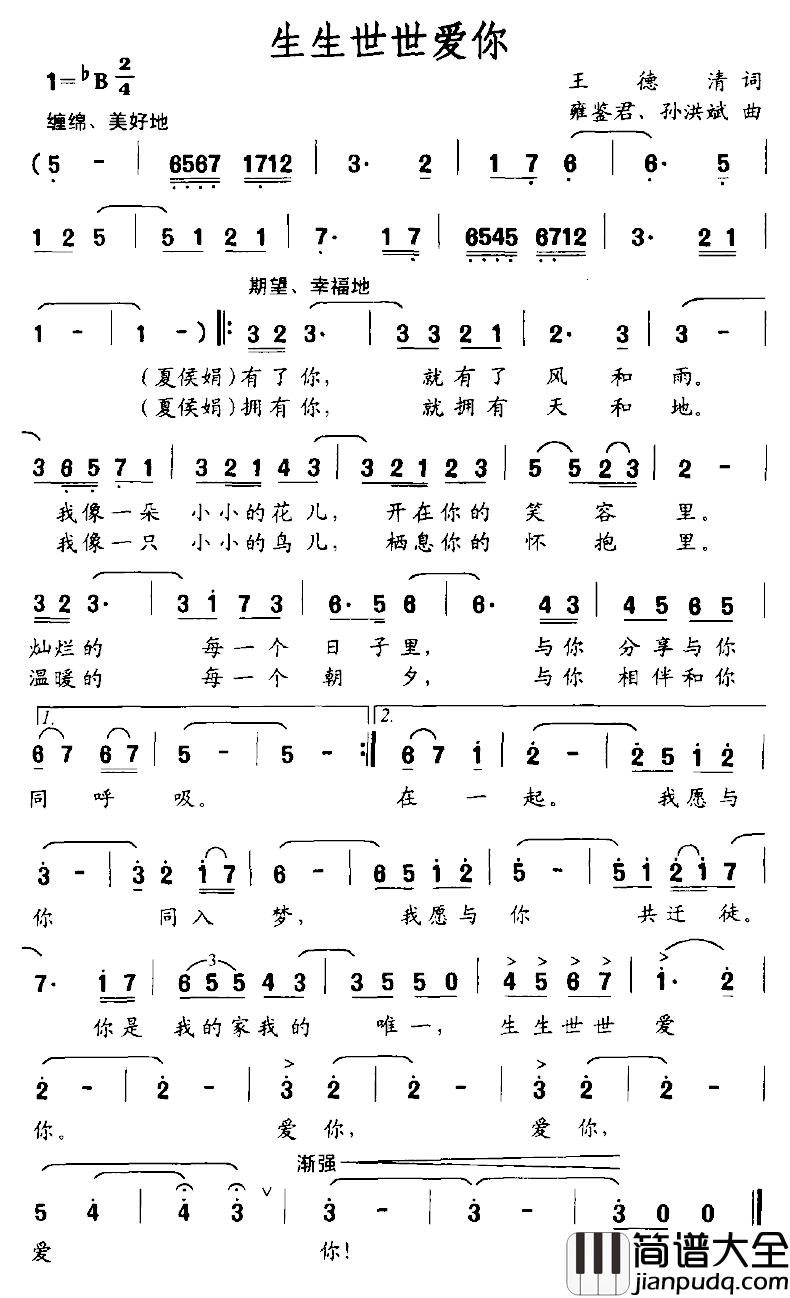 生生世世爱你
1=♭B 2/4
王德清词
缠绵、美好地
雍鉴君、孙洪斌曲
(5 - | 6567 1712 | 3· 2 | 1 7 6 | 6· 5 |
1 2 5 | 5 1 2 1 | 7· 1 7 | 6545 6712 | 3· 2 1 |
期望、幸福地
1 - | 1 - ) ‖: 3 2 3· | 3 3 2 1 | 2· 3 | 3 - |
(夏侯娟)有了你, 就有了风和雨。
(夏侯娟)拥有你, 就拥有天和地。
3 6 5 7 1 | 3 2 1 4 3 | 3 2 1 2 3 | 5 5 2 3 | 2 - |
我像一朵小小的花儿, 开在你的笑容里。
我像一只小小的鸟儿, 栖息你的怀抱里。
3 2 3· | 3 1 7 3 | 6· 5 6 | 6· 4 3 | 4 5 6 5 |
灿烂的 每一个日子里, 与你分享与你
温暖的 每一个朝夕, 与你相伴和你
1. 2.
6 7 6 7 | 5 - | 5 - :‖ 6 7 1 | 2 - | 2 5 1 2 |
同呼吸。 在一起。 我愿与
3 - | 3 2 1 7 | 6 - | 6 5 1 2 | 5 - | 5 1 2 1 7 |
你 同入梦, 我愿与你 共迁徒。
7· 1 7 | 6 5 5 4 3 | 3 5 5 0 | 4 5 6 7 | 1· 2 |
3
你是我的家我的唯一, 生生世世爱
2 - | 2 - | 3 2 | 2 - | 3 2 | 2 - |
你。 爱你, 爱你,
渐强
5 4 | 4 3 ∨ | 3 - | 3 - | 3 0 0 ‖
爱 你!
简谱大全
jianpudq.com